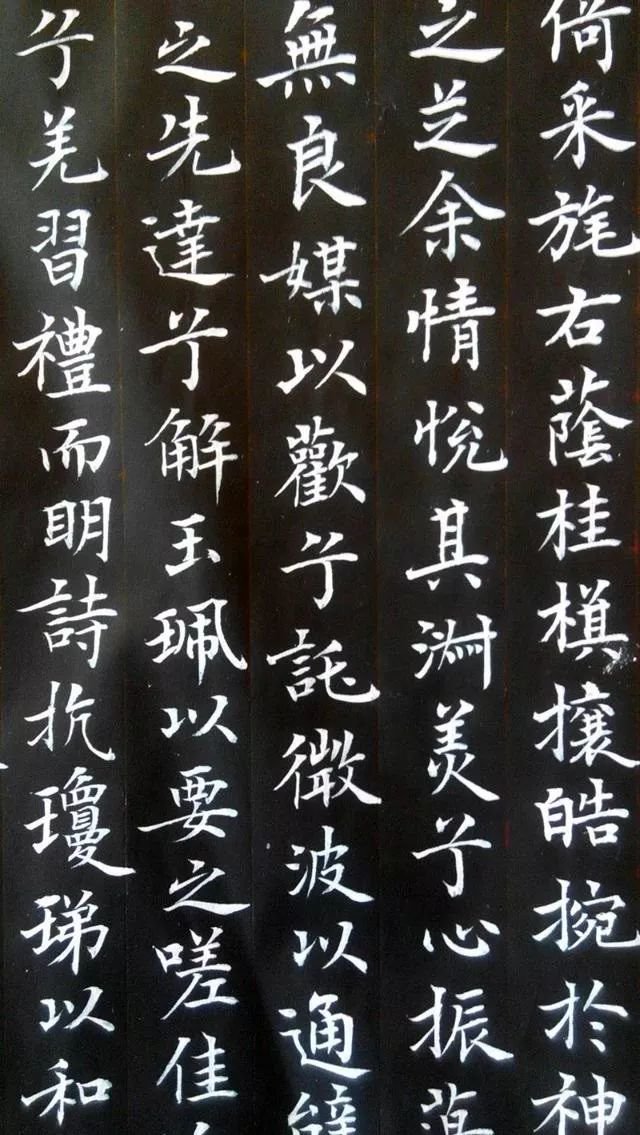 倚采旄右蔭桂棋攘皓捥於神
之芝余情悅其淑美兮心振
無良媒以歡兮託微波以通
之先達兮解玉珮以要之嗟佳
兮羌習禮而明詩抗瓊珶以和